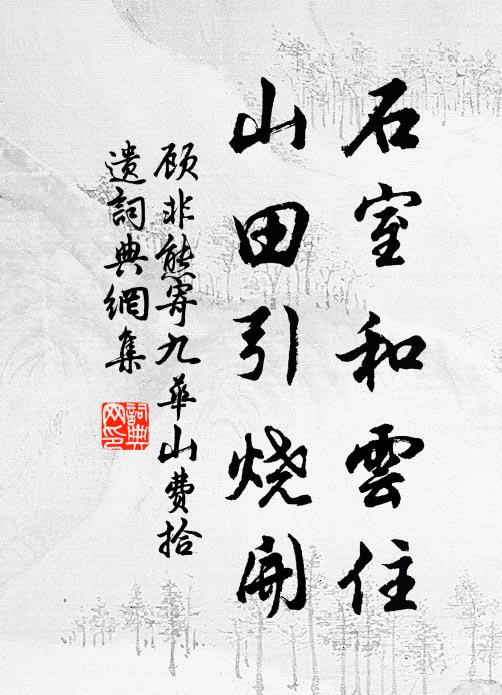 石室和雲住
山田引烧開
顾非熊寄九華山費拾
遺詞典網集
詞典
网印